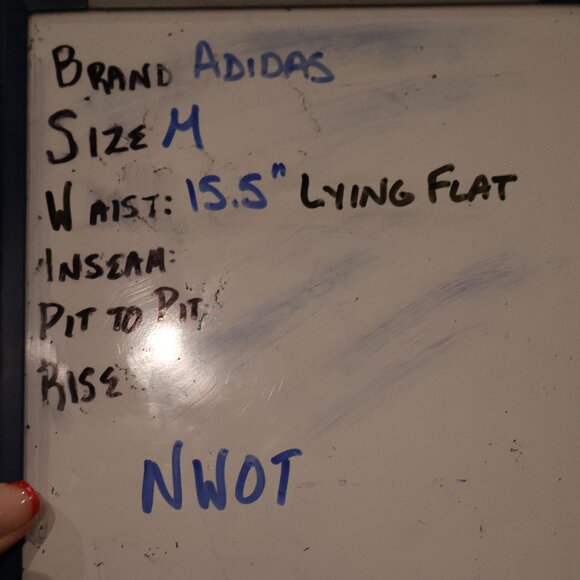 BRAND ADIDAS
SIZE M
WAIST: 15.5" LYING FLAT
INSEAM:
PIT TO PIT:
RISE
NWOT